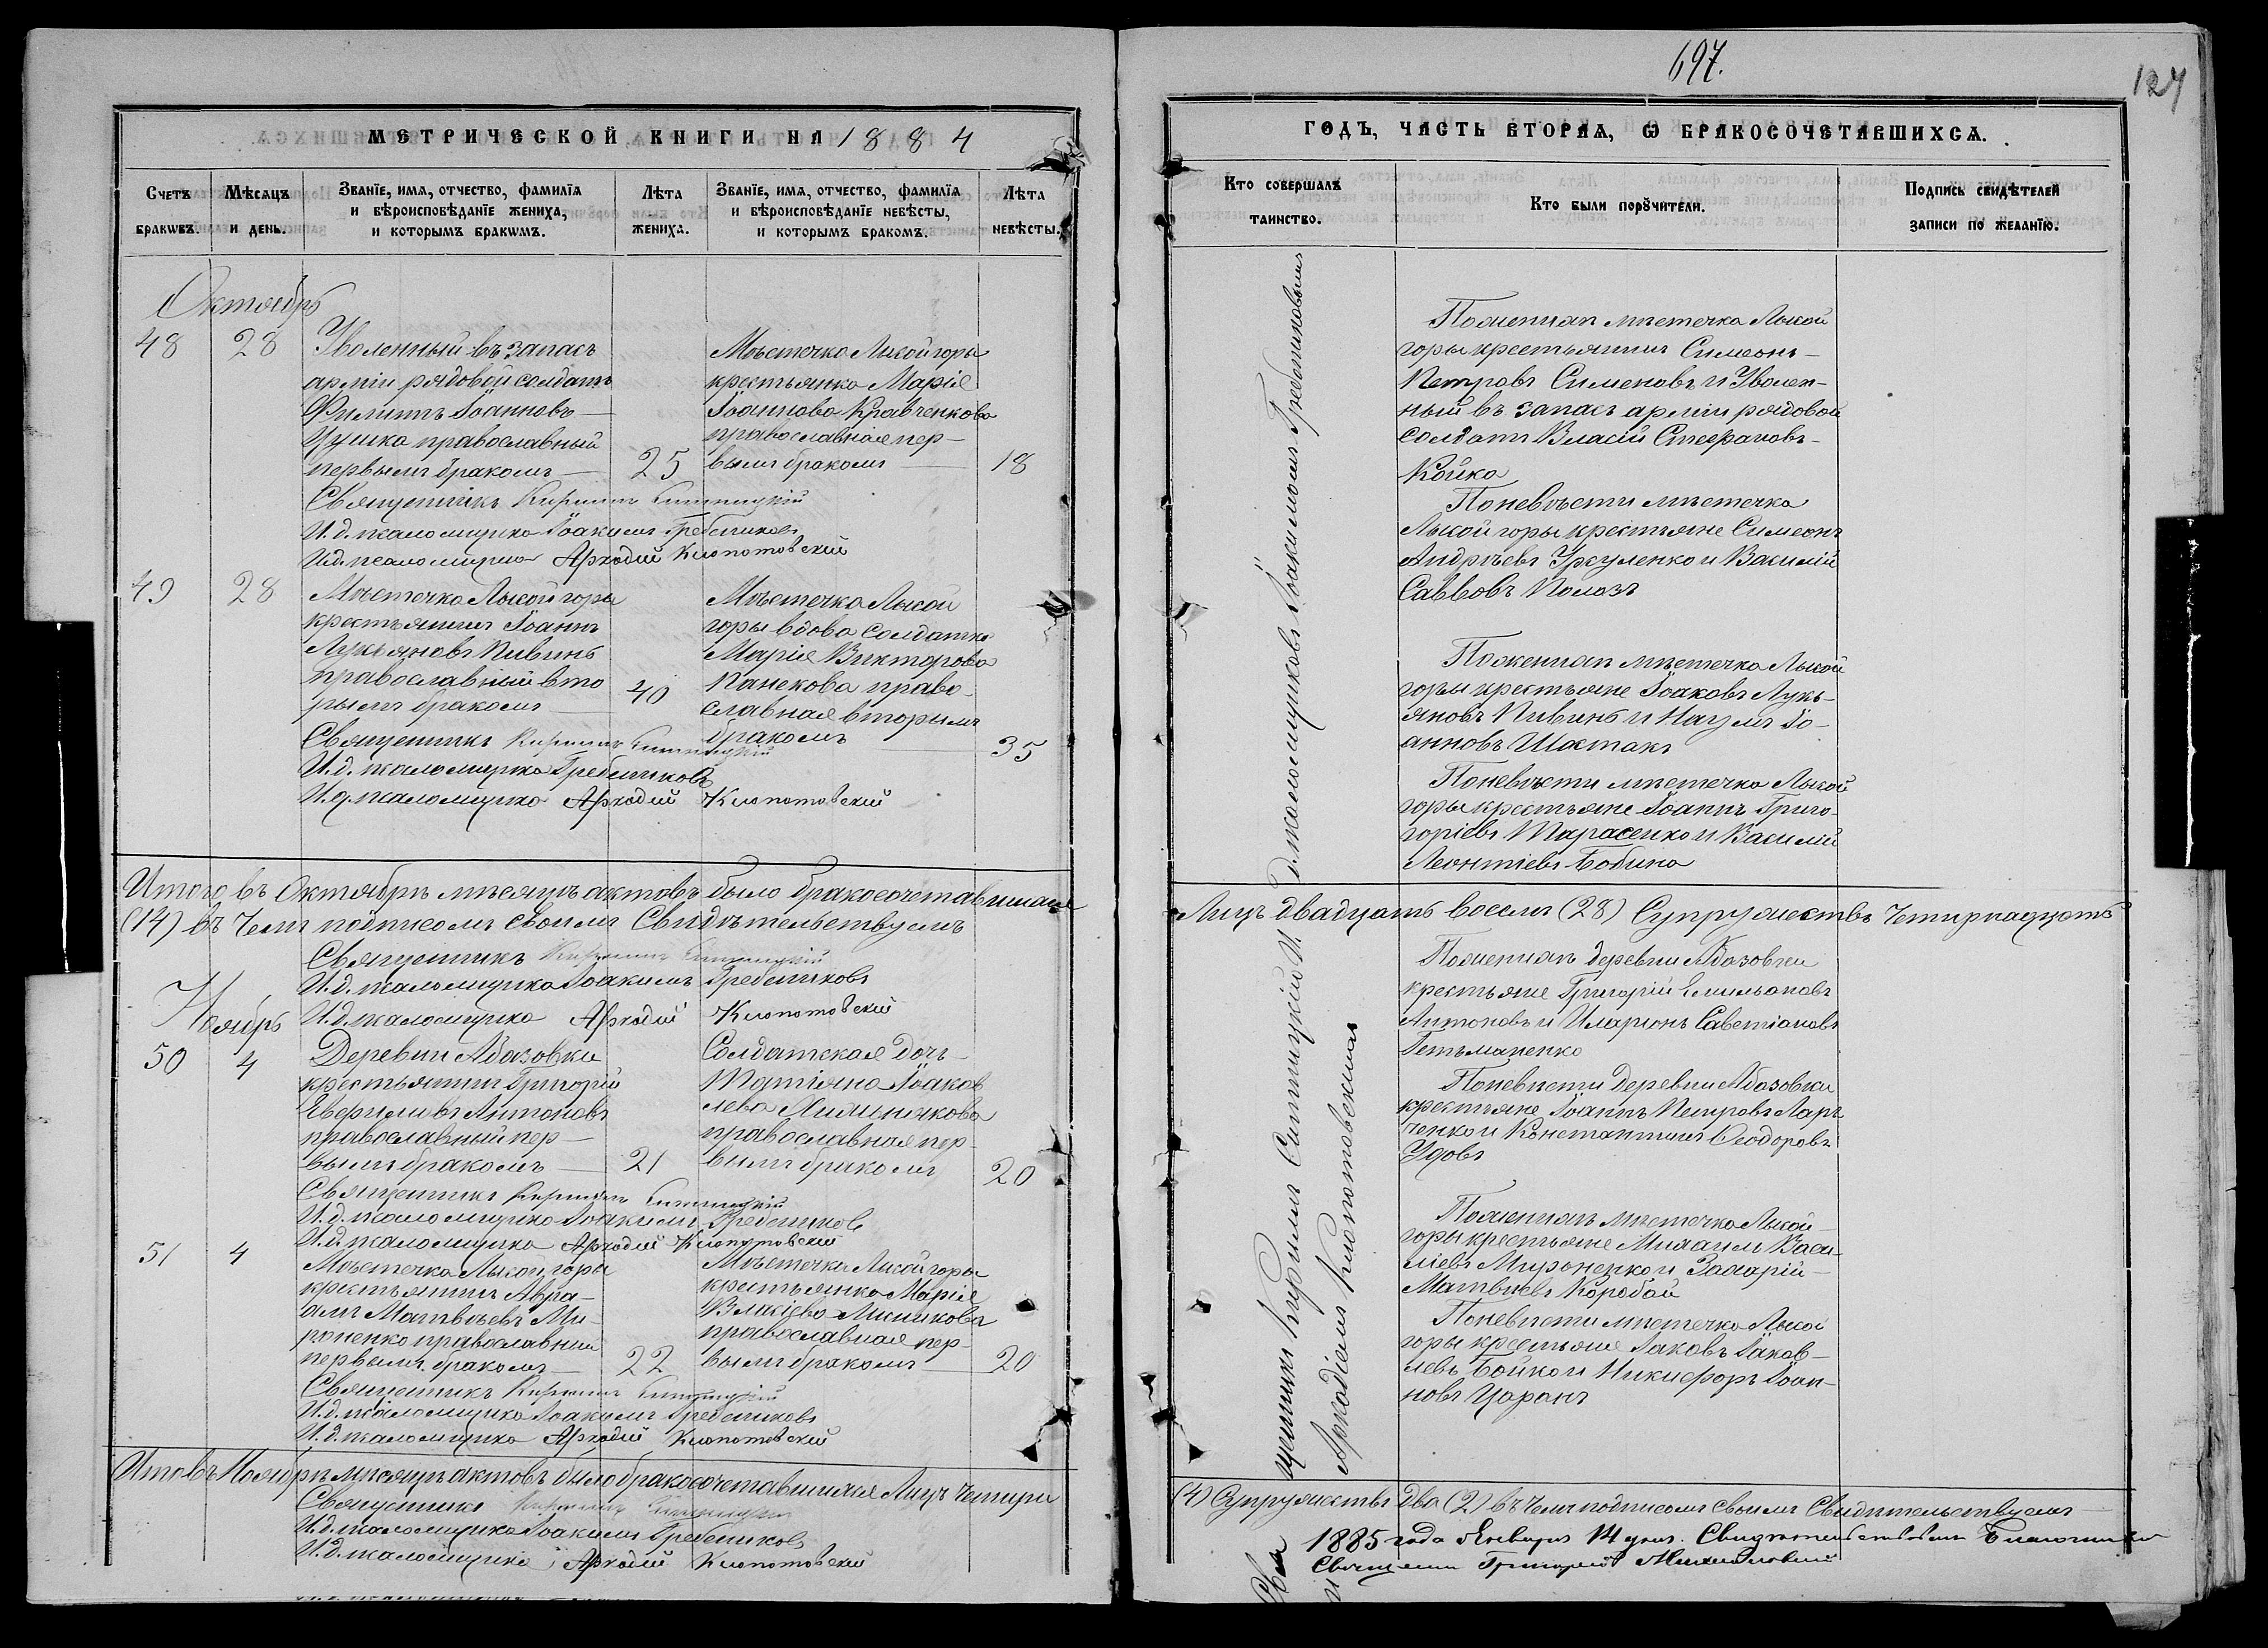 МЕТРИЧЕСКОЙ КНИГИ НА 1884
Счетъ браковъ.
Мѣсяцъ и день.
Званіе, имя, отчество, фамилія и вѣроисповѣданіе жениха, и которымъ бракомъ.
Лѣта жениха.
Званіе, имя, отчество, фамилія и вѣроисповѣданіе невѣсты, и которымъ бракомъ.
Лѣта невѣсты.
Октябрь
48
28
Уволенный въ запасъ
арміи рядовой солдатъ
Филиппъ Іоанновъ
Цушка православный
первымъ бракомъ
25
Мѣстечка Лысой горы
крестьянка Марія
Іоаннова Кравченкова
православная пер-
вымъ бракомъ
18
Священникъ Кириллъ Ситницкій
И. д. псаломщика Іоакимъ Гребениковъ
И.д. псаломщика Аркадій Клопотовскій
49
28
Мѣстечка Лысой горы
крестьянинъ Іоаннъ
Лукьяновъ Пивинь
православный вто
рымъ бракомъ
40
Мѣстечка Лысой
горы вдова солдатка
Марія Викторова
Панекова право-
славная вторымъ
бракомъ
35
Священникъ Кириллъ Ситницкій
И. д. псаломщика Гребениковъ
И. д. псаломщика Аркадій Клопотовскій
Итого въ Октябрѣ мѣсяцѣ актовъ было бракосочетавшихся
(14) въ чемъ подписомъ своимъ Свидѣтельствуемъ
Священникъ Кириллъ Ситницкій
И. д. псаломщика Іоакимъ Гребениковъ
И. д. псаломщика Аркадій Клопотовскій
Ноябрь
50
4
Деревни Абазовки
крестьянинъ Григорій
Антоновъ
православный пер-
вымъ бракомъ
21
Солдатская дочь
Татіяна Іоаков
лева
православная пер-
вымъ бракомъ
20
Священникъ Кириллъ Ситницкій
И. д. псаломщика Іоакимъ Гребениковъ
И. д. псаломщика Аркадій Клопотовскій
51
4
Мѣстечка Лысой горы
крестьянинъ Авра-
амъ Матвѣевъ Ми-
роненко православный
первымъ бракомъ
22
Мѣстечка Лисой горы
крестьянка Марія
Власіева Миникова
православная пер-
вымъ бракомъ
20
Священникъ Кириллъ Ситницкій
И. д. псаломщика Іоакимъ Гребениковъ
И. д. псаломщика Аркадій Клопотовскій
Итовъ Ноябрѣ мѣсяцѣ актовъ было бракосочетавшихся Лицъ Четыри
Священникъ Кириллъ Ситницкій
И. д. псаломщика Іоакимъ Гребениковъ
И. д. псаломщика Аркадій Клопотовскій
697.
127
ГОДЪ, ЧАСТЬ ВТОРАЯ, Ѡ БРАКОСОЧЕТАВШИХСЯ.
Кто совершалъ таинство.
Кто были порꙋчители.
Подпись свидѣтелей записи по желанію.
Священникъ Кирилъ Ситницкій И. д. псаломщиковъ Іоакимомъ Гребениковымъ
и Аркадіемъ Клопотовскимъ
По женихѣ мѣстечка Лысой
горы крестьянинъ Симеонъ
Петровъ Сименовъ и Уволен-
ный въ запасъ арміи рядовой
солдатъ Власій Стефановъ
Койка
По невѣсти мѣстечка
Лысой горы крестьяне Симеонъ
Андрѣевъ и Василій
Саввовъ Полозъ
По женихѣ мѣстечка Лысой
горы крестьяне Іоаковъ Лукь-
яновъ Пивинь и Наумъ Іо-
анновъ Шостакъ
По невѣсти мѣстечка Лысой
горы крестьяне Іоаннъ Григо-
горіевъ Тарасенко и Василій
Леонтіевъ Бабина
Лицъ двадцать восемь (28) Супружествъ Четырнадцать
По женихѣ деревни Абазовки
крестьяне Григорій Емильяновъ
Антоновъ и Иларіонъ Саветіановъ
Гетьманенко
По невѣсти деревни Абазовки
крестьяне Іоаннъ Петровъ Ларъ
ченко и Константинъ Ѳеодоровъ
Удовъ
По женихѣ мѣстечка Лысой
горы крестьяне Михаилъ Васи-
ліевъ Мироненко и Захарій
Матвѣевъ Коробай
По невѣсти мѣстечка Лысой
горы крестьяне Іаковъ Іаков-
левъ Бойко и Никифоръ Іоан-
новъ Царанъ
(4) Супружествъ Два (2) въ чемъ подписомъ своимъ Свидѣтельствуемъ
1885 года Января 14 дня. Свидѣтельствовалъ Благочинный
Священникъ Григорій